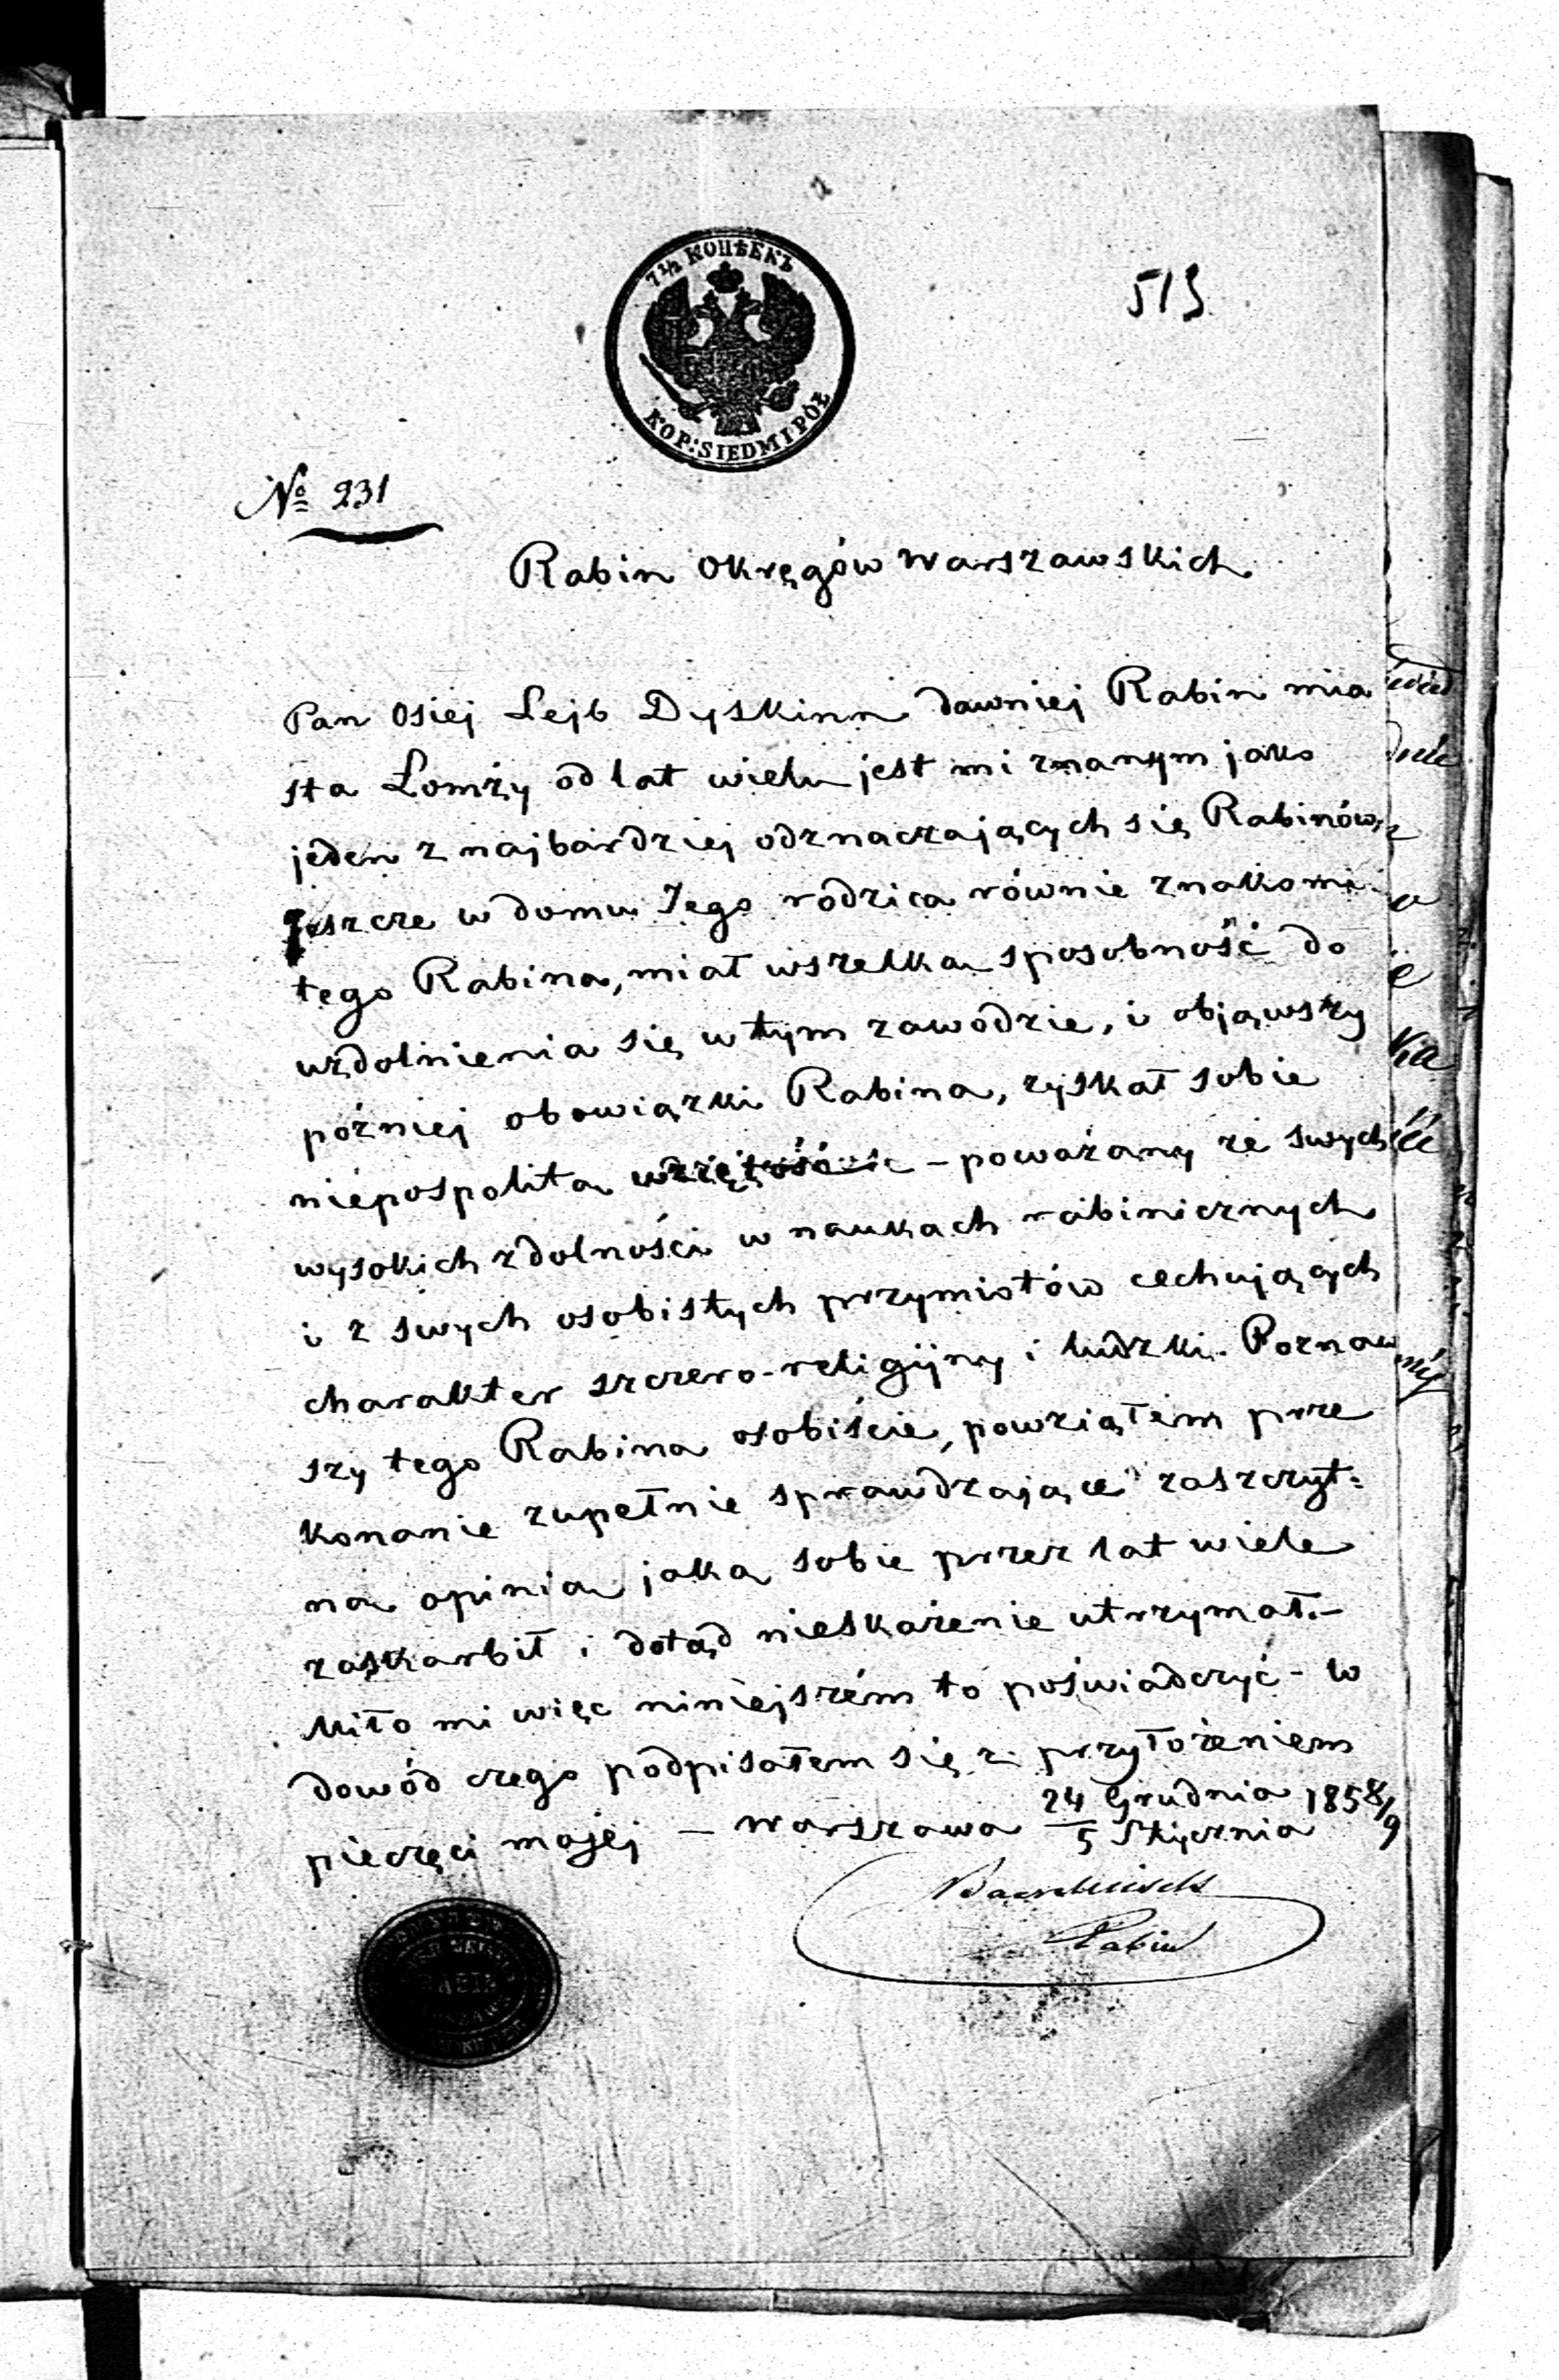 7½ КОПѢЕКЪ
KOP: SIEDM I PÓŁ
513
№ 231
Rabin Okręgów Warszawskich
Pan Osiej Lejb Dyskinn dawniej Rabin mia
sta Łomży od lat wielu jest mi znanym jako
jeden z najbardziej odznaczających się Rabinów,
Jeszcze w domu Jego rodzica równie znakomi-
tego Rabina, miał wszelką sposobność do
uzdolnienia się w tym zawodzie, i objąwszy
później obowiązki Rabina, zyskał sobie
niepospolitą wziętość – poważany ze swych
wysokich zdolności w naukach rabinicznych
i z swych osobistych przymiotów cechujących
charakter szczero-religijny i ludzki. Poznaw
szy tego Rabina osobiście, powziąłem prze
konanie zupełnie sprawdzające zaszczyt-
ną opinią jaką sobie przez lat wiele
zaskarbił i dotąd nieskażenie utrzymał.–
Miło mi więc niniejszém to poświadczyć – w
dowód czego podpisałem się z przyłożeniem
pieczęci mojéj – Warszawa 24 Grudnia / 5 Stycznia 1858/9
Rabin
RABIN